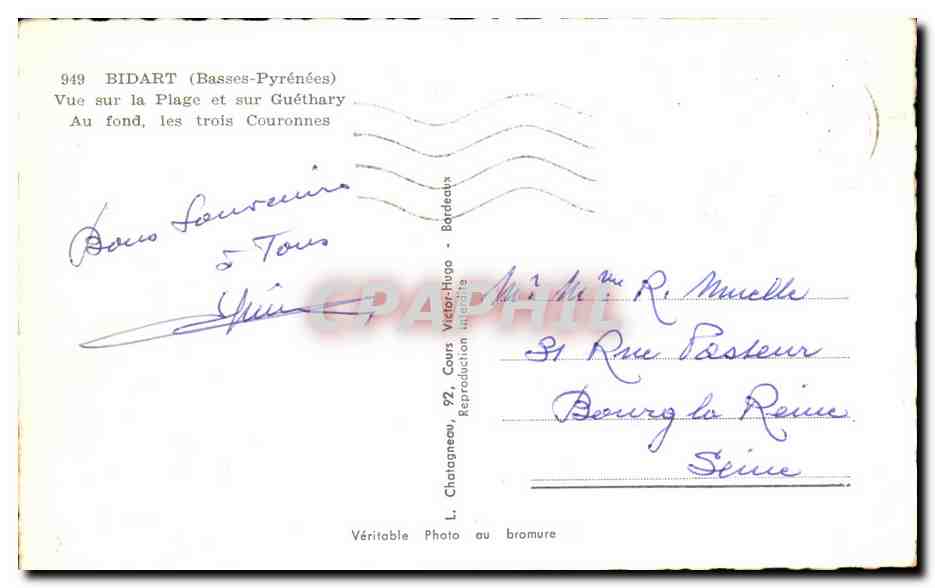 949 BIDART (Basses-Pyrénées)
Vue sur la Plage et sur Guéthary
Au fond, les trois Couronnes
Bons Souvenirs
à Tous
L. Chatagneau, 92, Cours Victor-Hugo - Bordeaux
Reproduction interdite
CPAPHIL
Mr Mme R. Muelle
31 Rue Pasteur
Bourg la Reine
Seine
Véritable Photo au bromure